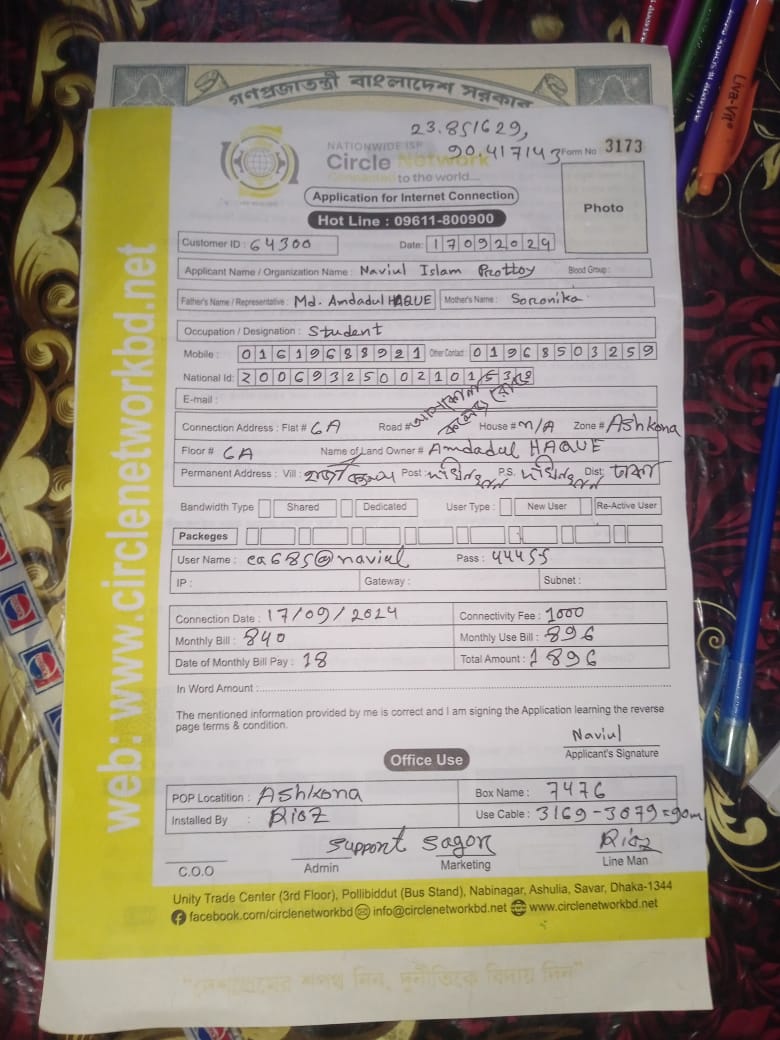 গণপ্রজাতন্ত্রী বাংলাদেশ সরকার
23.851629,
90.417143
NATIONWIDE ISP
Circle Network
Connected to the world....
Form No 3173
Application for Internet Connection
Hot Line : 09611-800900
Photo
Customer ID : 64300 Date: 17092024
Applicant Name / Organization Name : Naviul Islam Prottoy Blood Group :
Father's Name / Representative : Md. Amdadul HAQUE Mother's Name : Soronika
Occupation / Designation : Student
Mobile : 01619688921 Other Contact : 01968503259
National Id:
E-mail :
Connection Address : Flat # 6A Road # House # n/A Zone # Ashkona
Floor # 6A Name of Land Owner # Amdadul HAQUE
Permanent Address : Vill : Post : P.S. Dist: ঢাকা
Bandwidth Type Shared Dedicated User Type : New User Re-Active User
Packeges
User Name : ea685@naviul Pass : 44455
IP : Gateway : Subnet :
Connection Date : 17/09/2024 Connectivity Fee : 1000
Monthly Bill : 840 Monthly Use Bill : 896
Date of Monthly Bill Pay : 18 Total Amount : 1896
In Word Amount :
The mentioned information provided by me is correct and I am signing the Application learning the reverse
page terms & condition.
Naviul
Applicant's Signature
Office Use
POP Locatition : Ashkona Box Name : 7476
Installed By : Rioz Use Cable : 3169-3079=90m
Support Sagor Rioz
C.O.O Admin Marketing Line Man
Unity Trade Center (3rd Floor), Pollibiddut (Bus Stand), Nabinagar, Ashulia, Savar, Dhaka-1344
facebook.com/circlenetworkbd info@circlenetworkbd.net www.circlenetworkbd.net
web: www.circlenetworkbd.net
"দেশপ্রেমের শপথ নিন, দুর্নীতিকে বিদায় দিন"
Liva-Vit